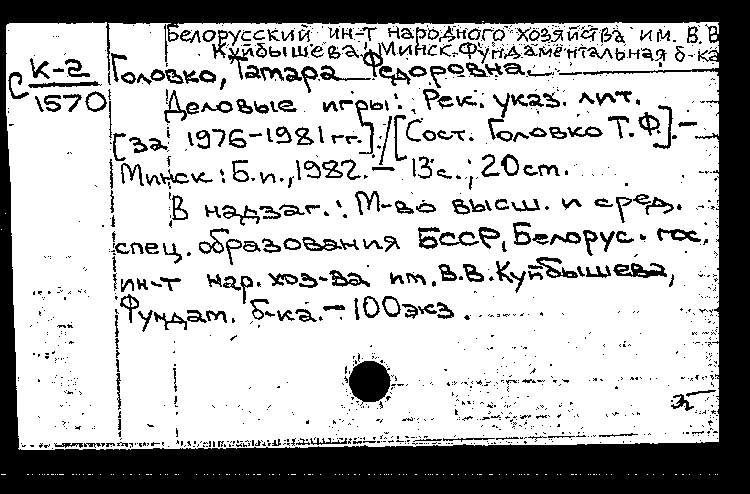 Белорусский ин-т народного хозяйства им. В.В
Куйбышева, Минск. Фундаментальная б-ка
С К-2
1570
Головко, Тамара Федоровна.
Деловые игры: Рек. указ. лит.
[за 1976-1981 гг.] / [Сост. Головко Т.Ф.]. -
Минск: Б.и., 1982. - 13 с.; 20 cm.
В надзаг.: М-во высш. и сред.
спец. образования БССР, Белорус. гос.
ин-т нар. хоз-ва им. В.В. Куйбышева,
Фундам. б-ка. - 100 экз.